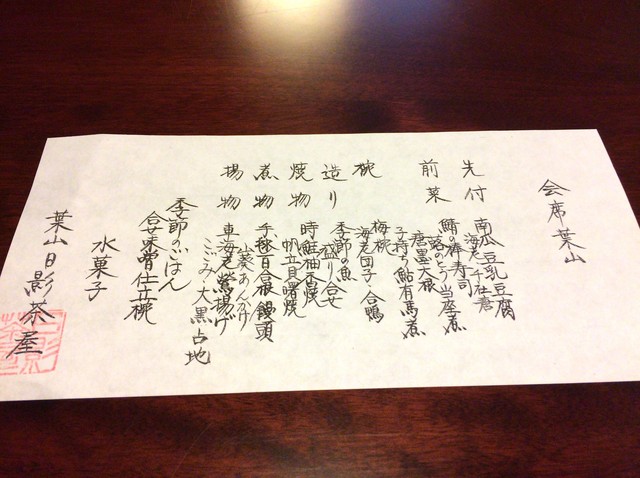 会席葉山
先付 南瓜豆乳豆腐
海老 千社唐
前菜 鯖の棒寿司
蕗のとう当座煮
唐墨大根
子持ち鮎有馬煮
椀 梅椀
海老団子 合鴨
造り 季節の魚
盛り合せ
焼物 時鮭柚香焼
帆立貝曙焼
煮物 手毬百合根饅頭
山葵あんかけ
揚物 車海老紫揚げ
こごみ 大黒占地
季節のごはん
合せ味噌仕立椀
水菓子
葉山日影茶屋